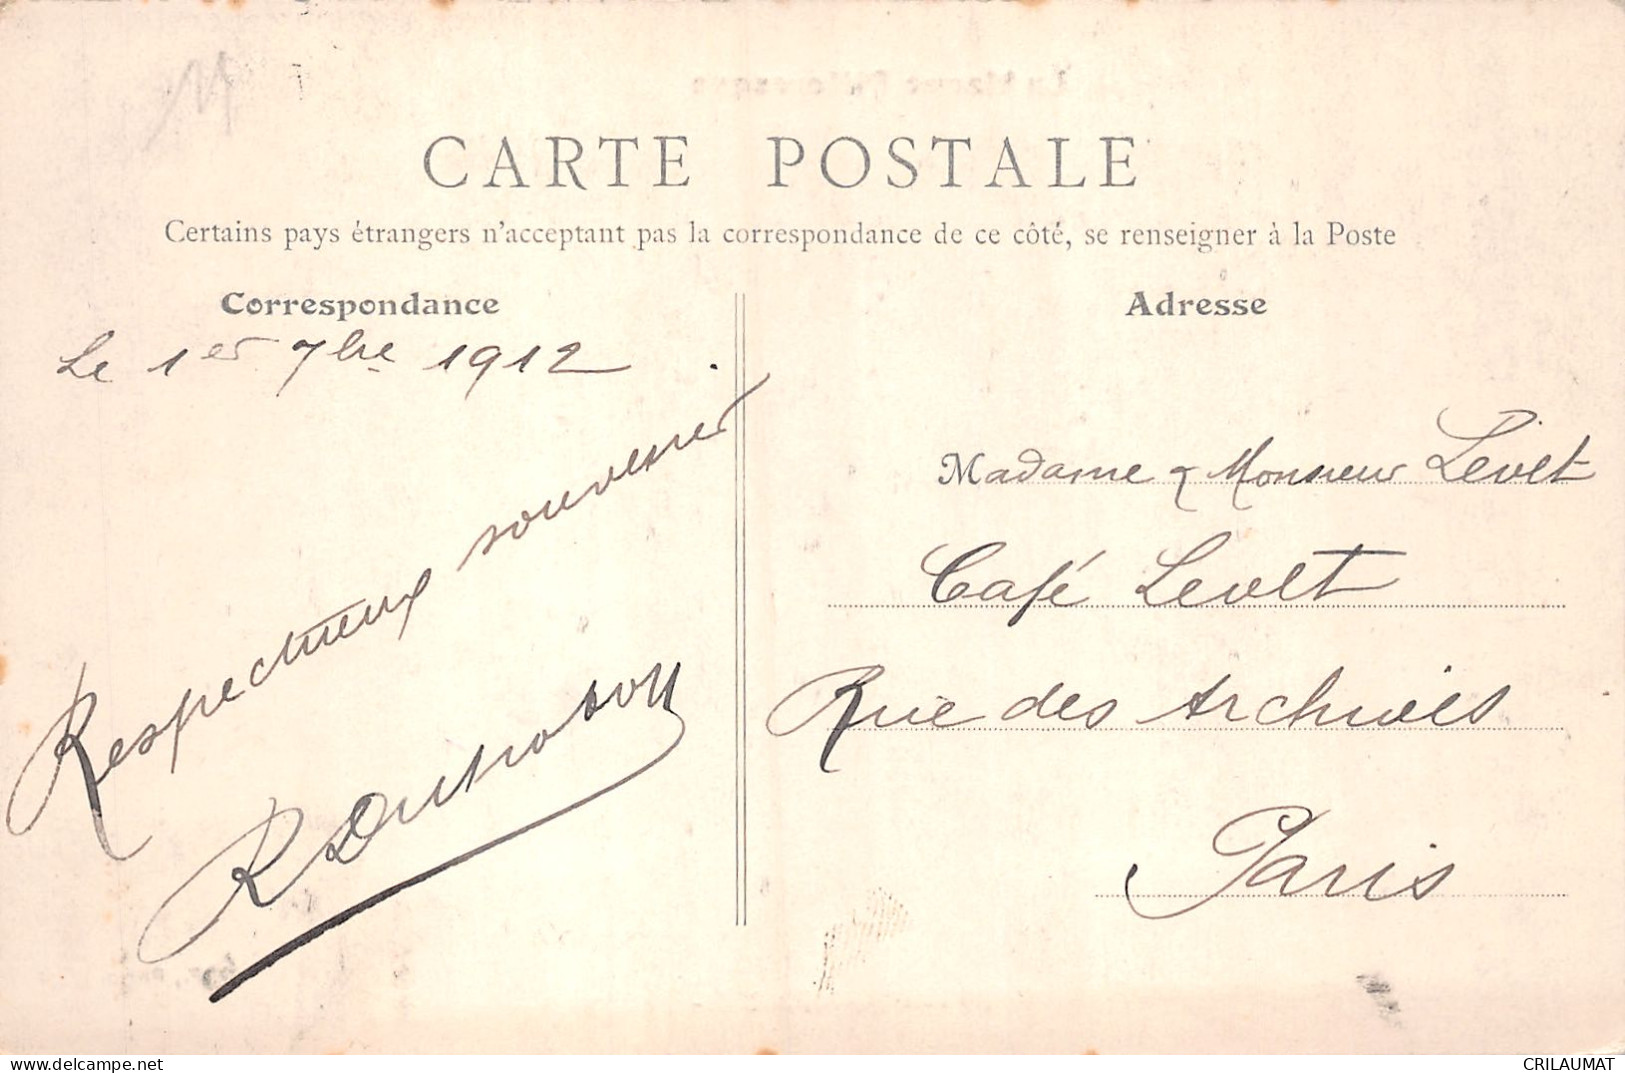 CARTE POSTALE
Certains pays étrangers n'acceptant pas la correspondance de ce côté, se renseigner à la Poste
Correspondance
Le 1er 7bre 1912
Respectueux souvenir
R
Adresse
Madame & Monsieur Levet
Café Levet
Rue des Archives
Paris
CRILAUMAT